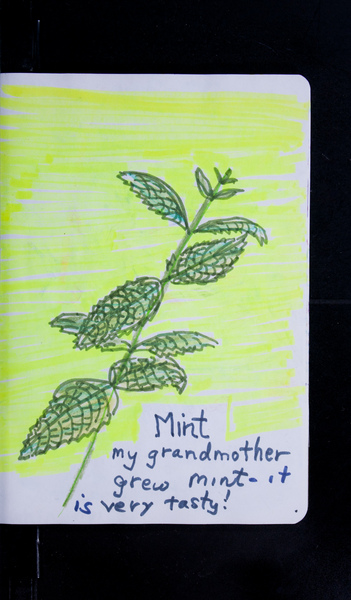 Mint
my grandmother
grew mint- it
is very tasty!